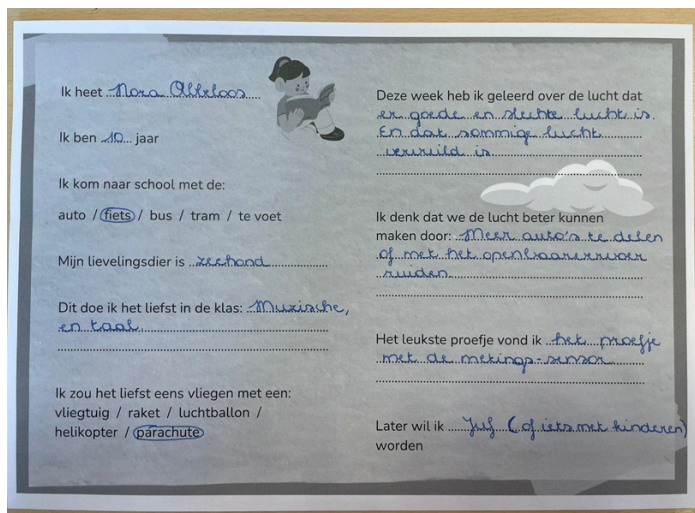 Ik heet Nora Abbeloos
Ik ben 10 jaar
Ik kom naar school met de:
auto / fiets / bus / tram / te voet
Mijn lievelingsdier is zeehond
Dit doe ik het liefst in de klas: Muzische,
en taal
Ik zou het liefst eens vliegen met een:
vliegtuig / raket / luchtballon /
helikopter / parachute
Deze week heb ik geleerd over de lucht dat
er goede en slechte lucht is.
En dat sommige lucht
vervuild is
Ik denk dat we de lucht beter kunnen
maken door: Meer auto's te delen
of met het openbaarervoer
ruiden
Het leukste proefje vond ik het proefje
met de metings-sensor
Later wil ik Juf (of iets met kinderen)
worden